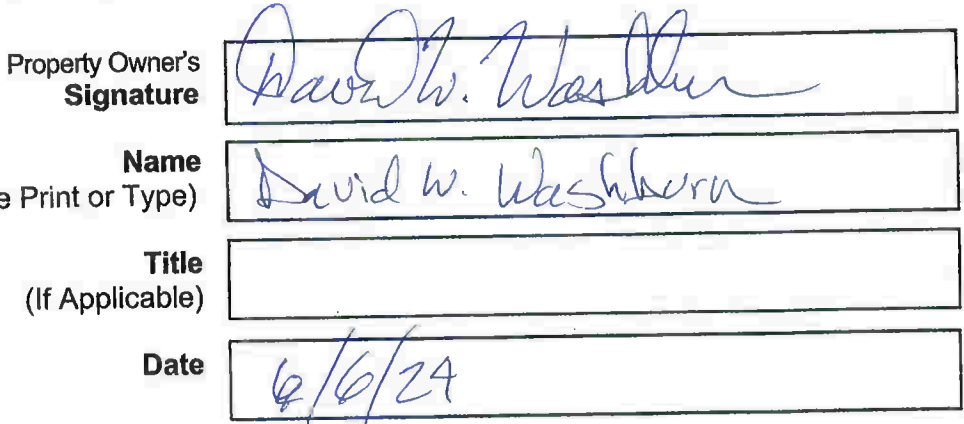 Property Owner's
Signature
David W. Washburn
Name
e Print or Type)
David W. Washburn
Title
(If Applicable)
Date
6/6/24